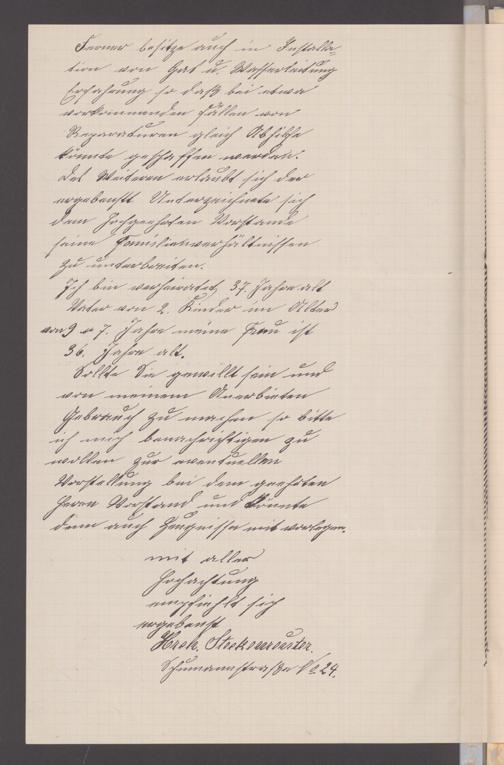 Ferner besitze auch in Installa-
tion von Gas u. Wasserleitung
Erfahrung so daß bei etwa
vorkommenden Fällen von
Reparaturen gleich Abhilfe
könnte geschaffen werden.
Des Weiteren erlaubt sich der
ergebenst Unterzeichnete sich
dem hochgeehrten Vorstande
seine Familienverhältnissen
zu unterbreiten.
Ich bin verheiratet, 37. Jahre alt
Vater von 2. Kinder im Alter
von 9 u 7. Jahre meine Frau ist
36. Jahre alt.
Sollte Sie gewillt sein und
von meinem Anerbieten
Gebrauch zu machen so bitte
ich mich benachrichtigen zu
wollen zur eventuellen
Vorstellung bei dem geehrten
Herrn Vorstand und könnte
dem auch Zeugnisse mit vorlegen.
mit aller
Hochachtung
empfiehlt sich
ergebenst
Hrch.
Schumannstraße No 24.